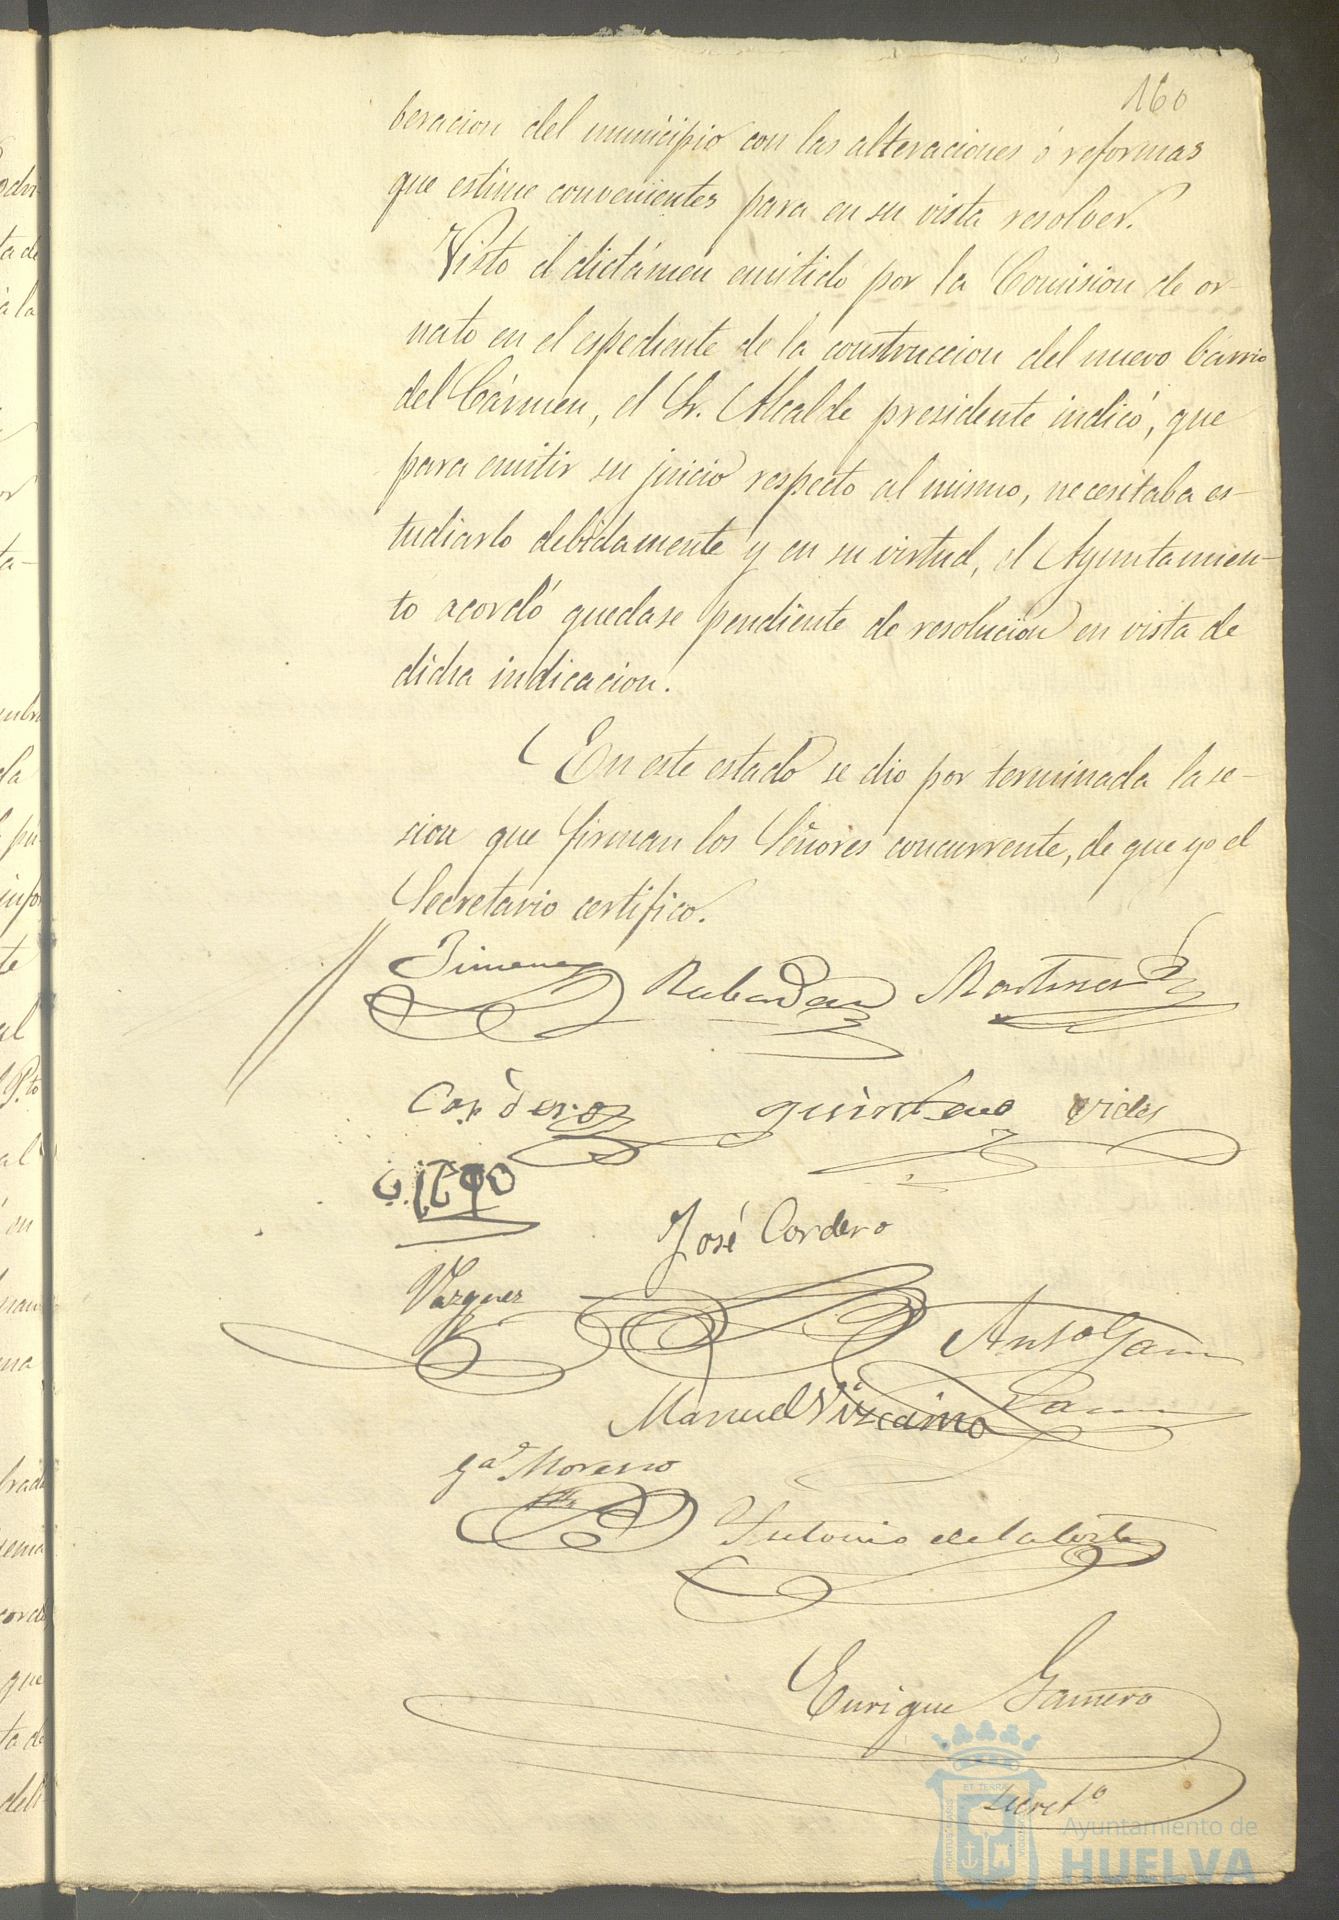 160
beracion del municipio con las alteraciones ó reformas
que estime convenientes para en su vista resolver.
Visto el dictámen emitido por la Comision de or-
nato en el espediente de la construccion del nuevo barrio
del Cármen, el Sr. Alcalde presidente indicó, que
para emitir su juicio respecto al mismo, necesitaba es-
tudiarlo debidamente y en su virtud, el Ayuntamien-
to acordó quedase pendiente de resolucion en vista de
dicha indicacion.
En este estado se dio por terminada la se-
sion que firman los Señores concurrente, de que yo el
Secretario certifico.
Jimenez Rabadan Martinez
Cordero quintero vides
José Cordero
Vazquez
Antº
Manuel Vizcaino
Gª Moreno
Antonio de la Corte
Enrique Gamero
Secretº
Ayuntamiento de
HUELVA